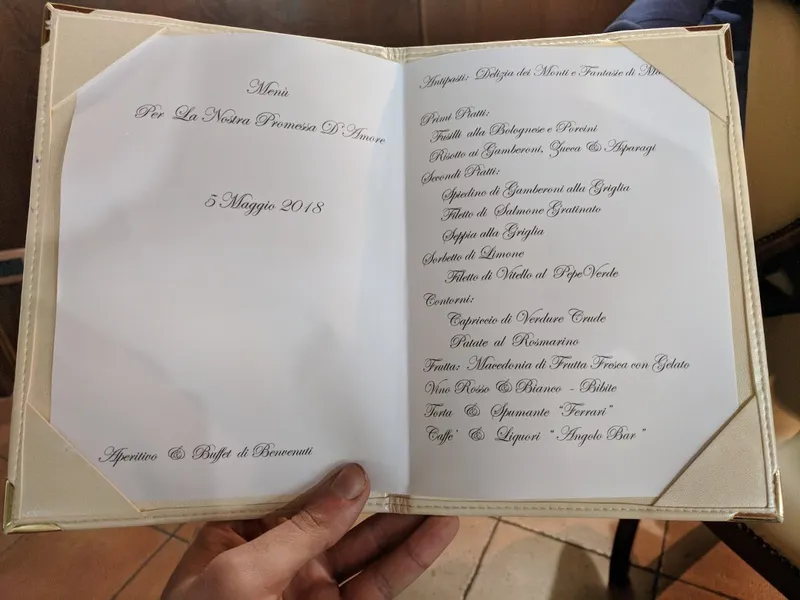 Menù
Per La Nostra Promessa D'Amore
5 Maggio 2018
Aperitivo & Buffet di Benvenuti
Antipasti: Delizia dei Monti e Fantasie di
Primi Piatti:
Fusilli alla Bolognese e Porcini
Risotto ai Gamberoni, Zucca & Asparagi
Secondi Piatti:
Spiedino di Gamberoni alla Griglia
Filetto di Salmone Gratinato
Seppia alla Griglia
Sorbetto di Limone
Filetto di Vitello al PepeVerde
Contorni:
Capriccio di Verdure Crude
Patate al Rosmarino
Frutta: Macedonia di Frutta Fresca con Gelato
Vino Rosso & Bianco - Bibite
Torta & Spumante "Ferrari"
Caffe' & Liquori "Angolo Bar"